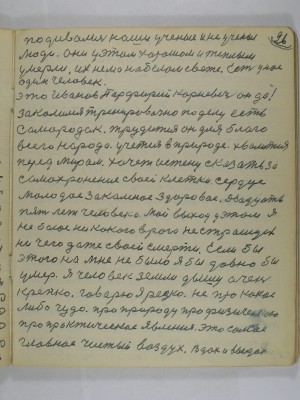 26
подивались наши ученые и не ученые
люди. они у этом хорошом и теплым
умерли, их нема на белом свете. Есть у нас
один человек.
это Иванов Порфирий Корнеевич он да!
закалился тренировкою по делу есть
самородок. трудится он для благо
всего народа. учится в природе. хвалится
перед миром. хочет истену сказать за
самохронение своей клетки. сердце
молодое закаленое здоровое. двадцать
пять лет человека. мой выход у этом я
не боюсь ни какого врого не страшусь
ни чего даже своей смерти. Если бы
этого на мне не было я бы давно бы
умер. Я человек земли дышу очень
крепко. говорю я резко. не про какое
либо чудо. про природу про физическое
про практическое явления. это самое
главное чистый воздух. вдох и выдох